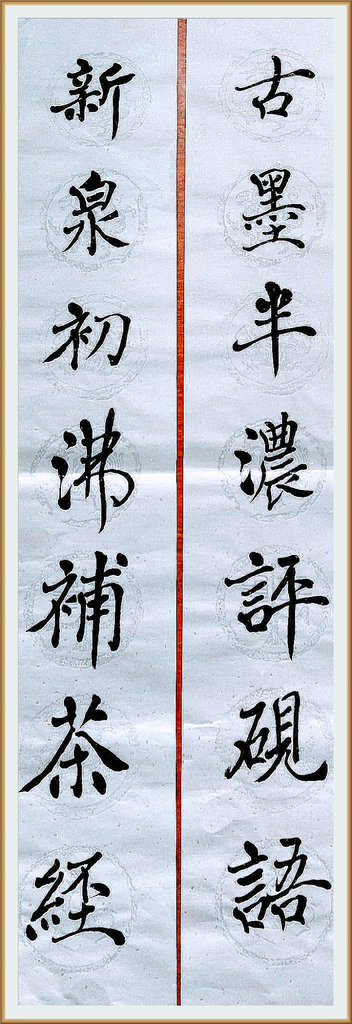 古墨半濃評硯語
新泉初沸補茶經